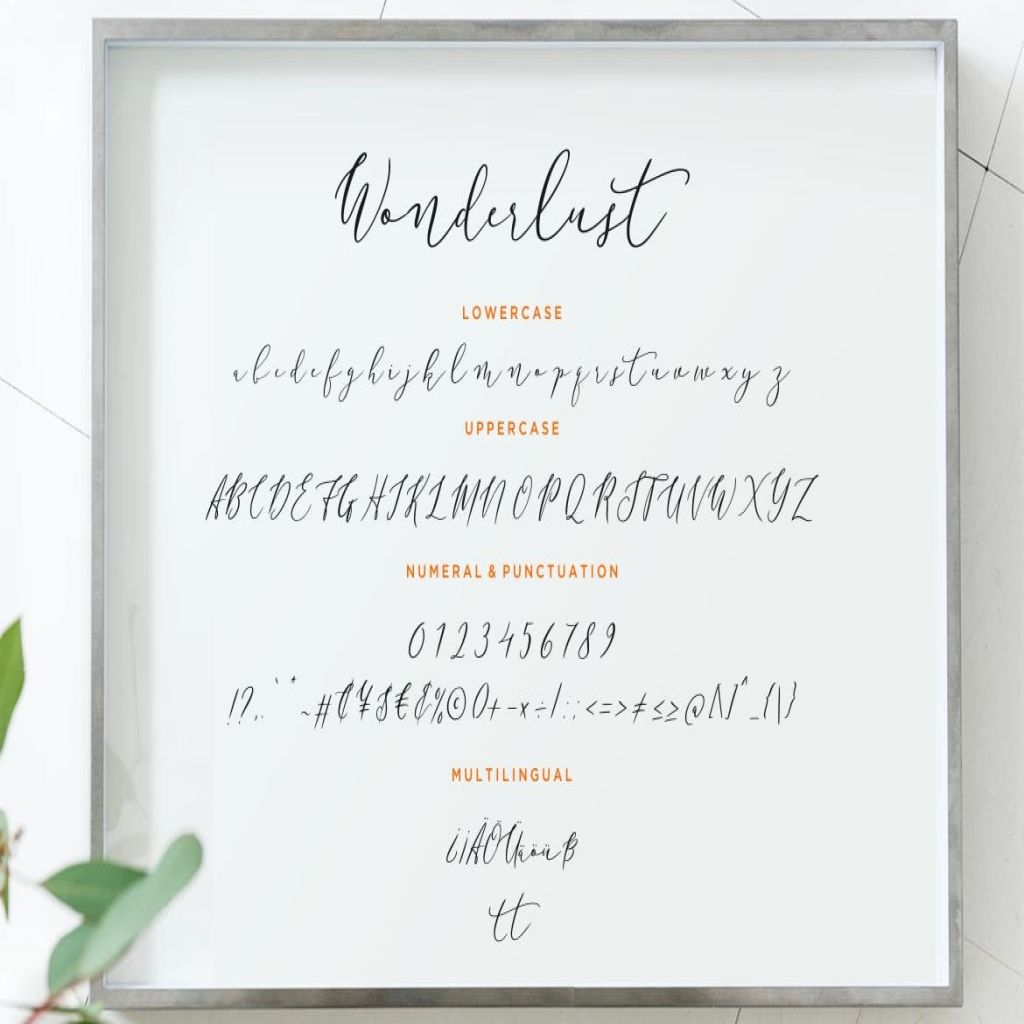 Wonderlust
LOWERCASE
abcdefghijklmnopqrstuvwxyz
UPPERCASE
ABCDEFGHIJKLMNOPQRSTUVWXYZ
NUMERAL & PUNCTUATION
0123456789
MULTILINGUAL
tt